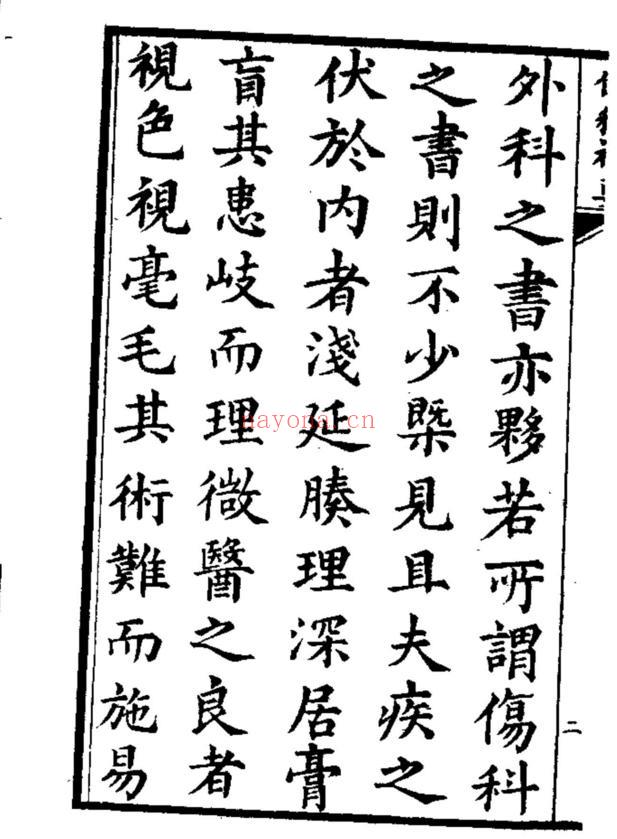 外科之書亦夥若所謂傷科
之書則不少槩見且夫疾之
伏於內者淺延腠理深居膏
肓其患岐而理微醫之良者
視色視毫毛其術難而施易
二
nayona.cn